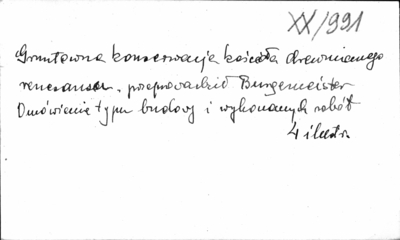 XX/991
Gruntowna konserwacja kościoła drewnianego
renesansow. przeprowadził Burgemeister
Omówienie typu budowy i wykonanych robót
4 ilustr.